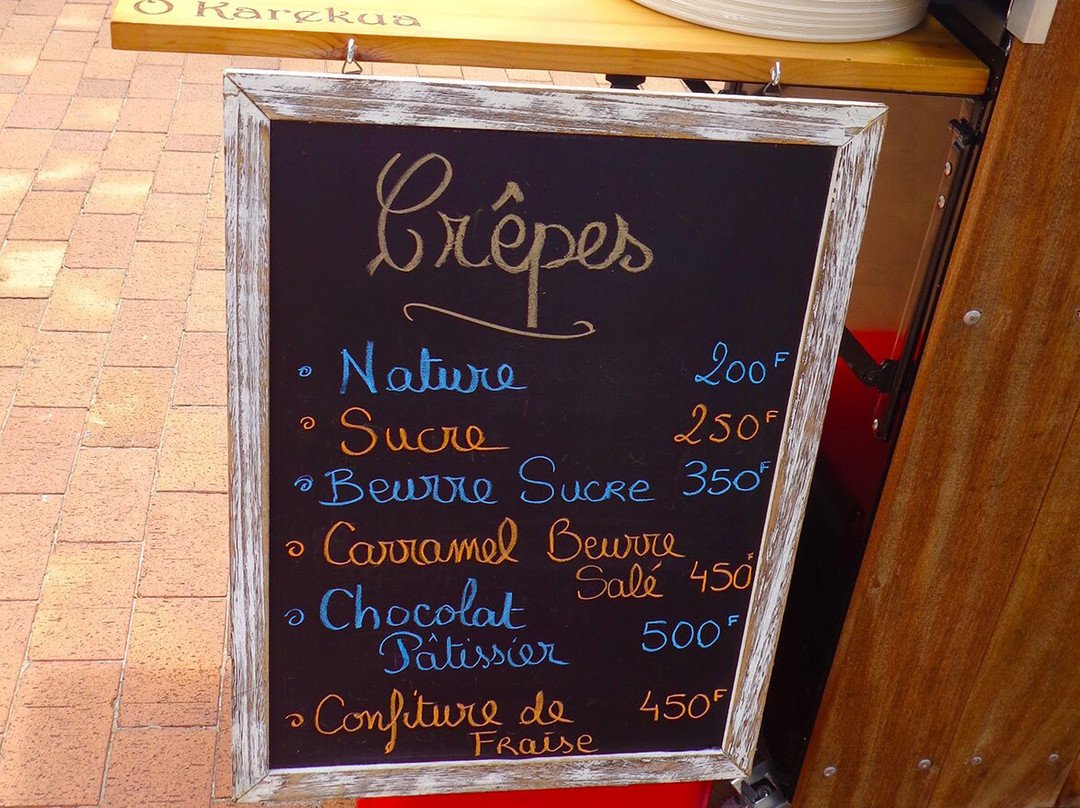 O Karekua
Crêpes
Nature 200F
Sucre 250F
Beurre Sucre 350F
Carramel Beurre
Salé 450F
Chocolat
Pâtissier 500F
Confiture de 450F
Fraise